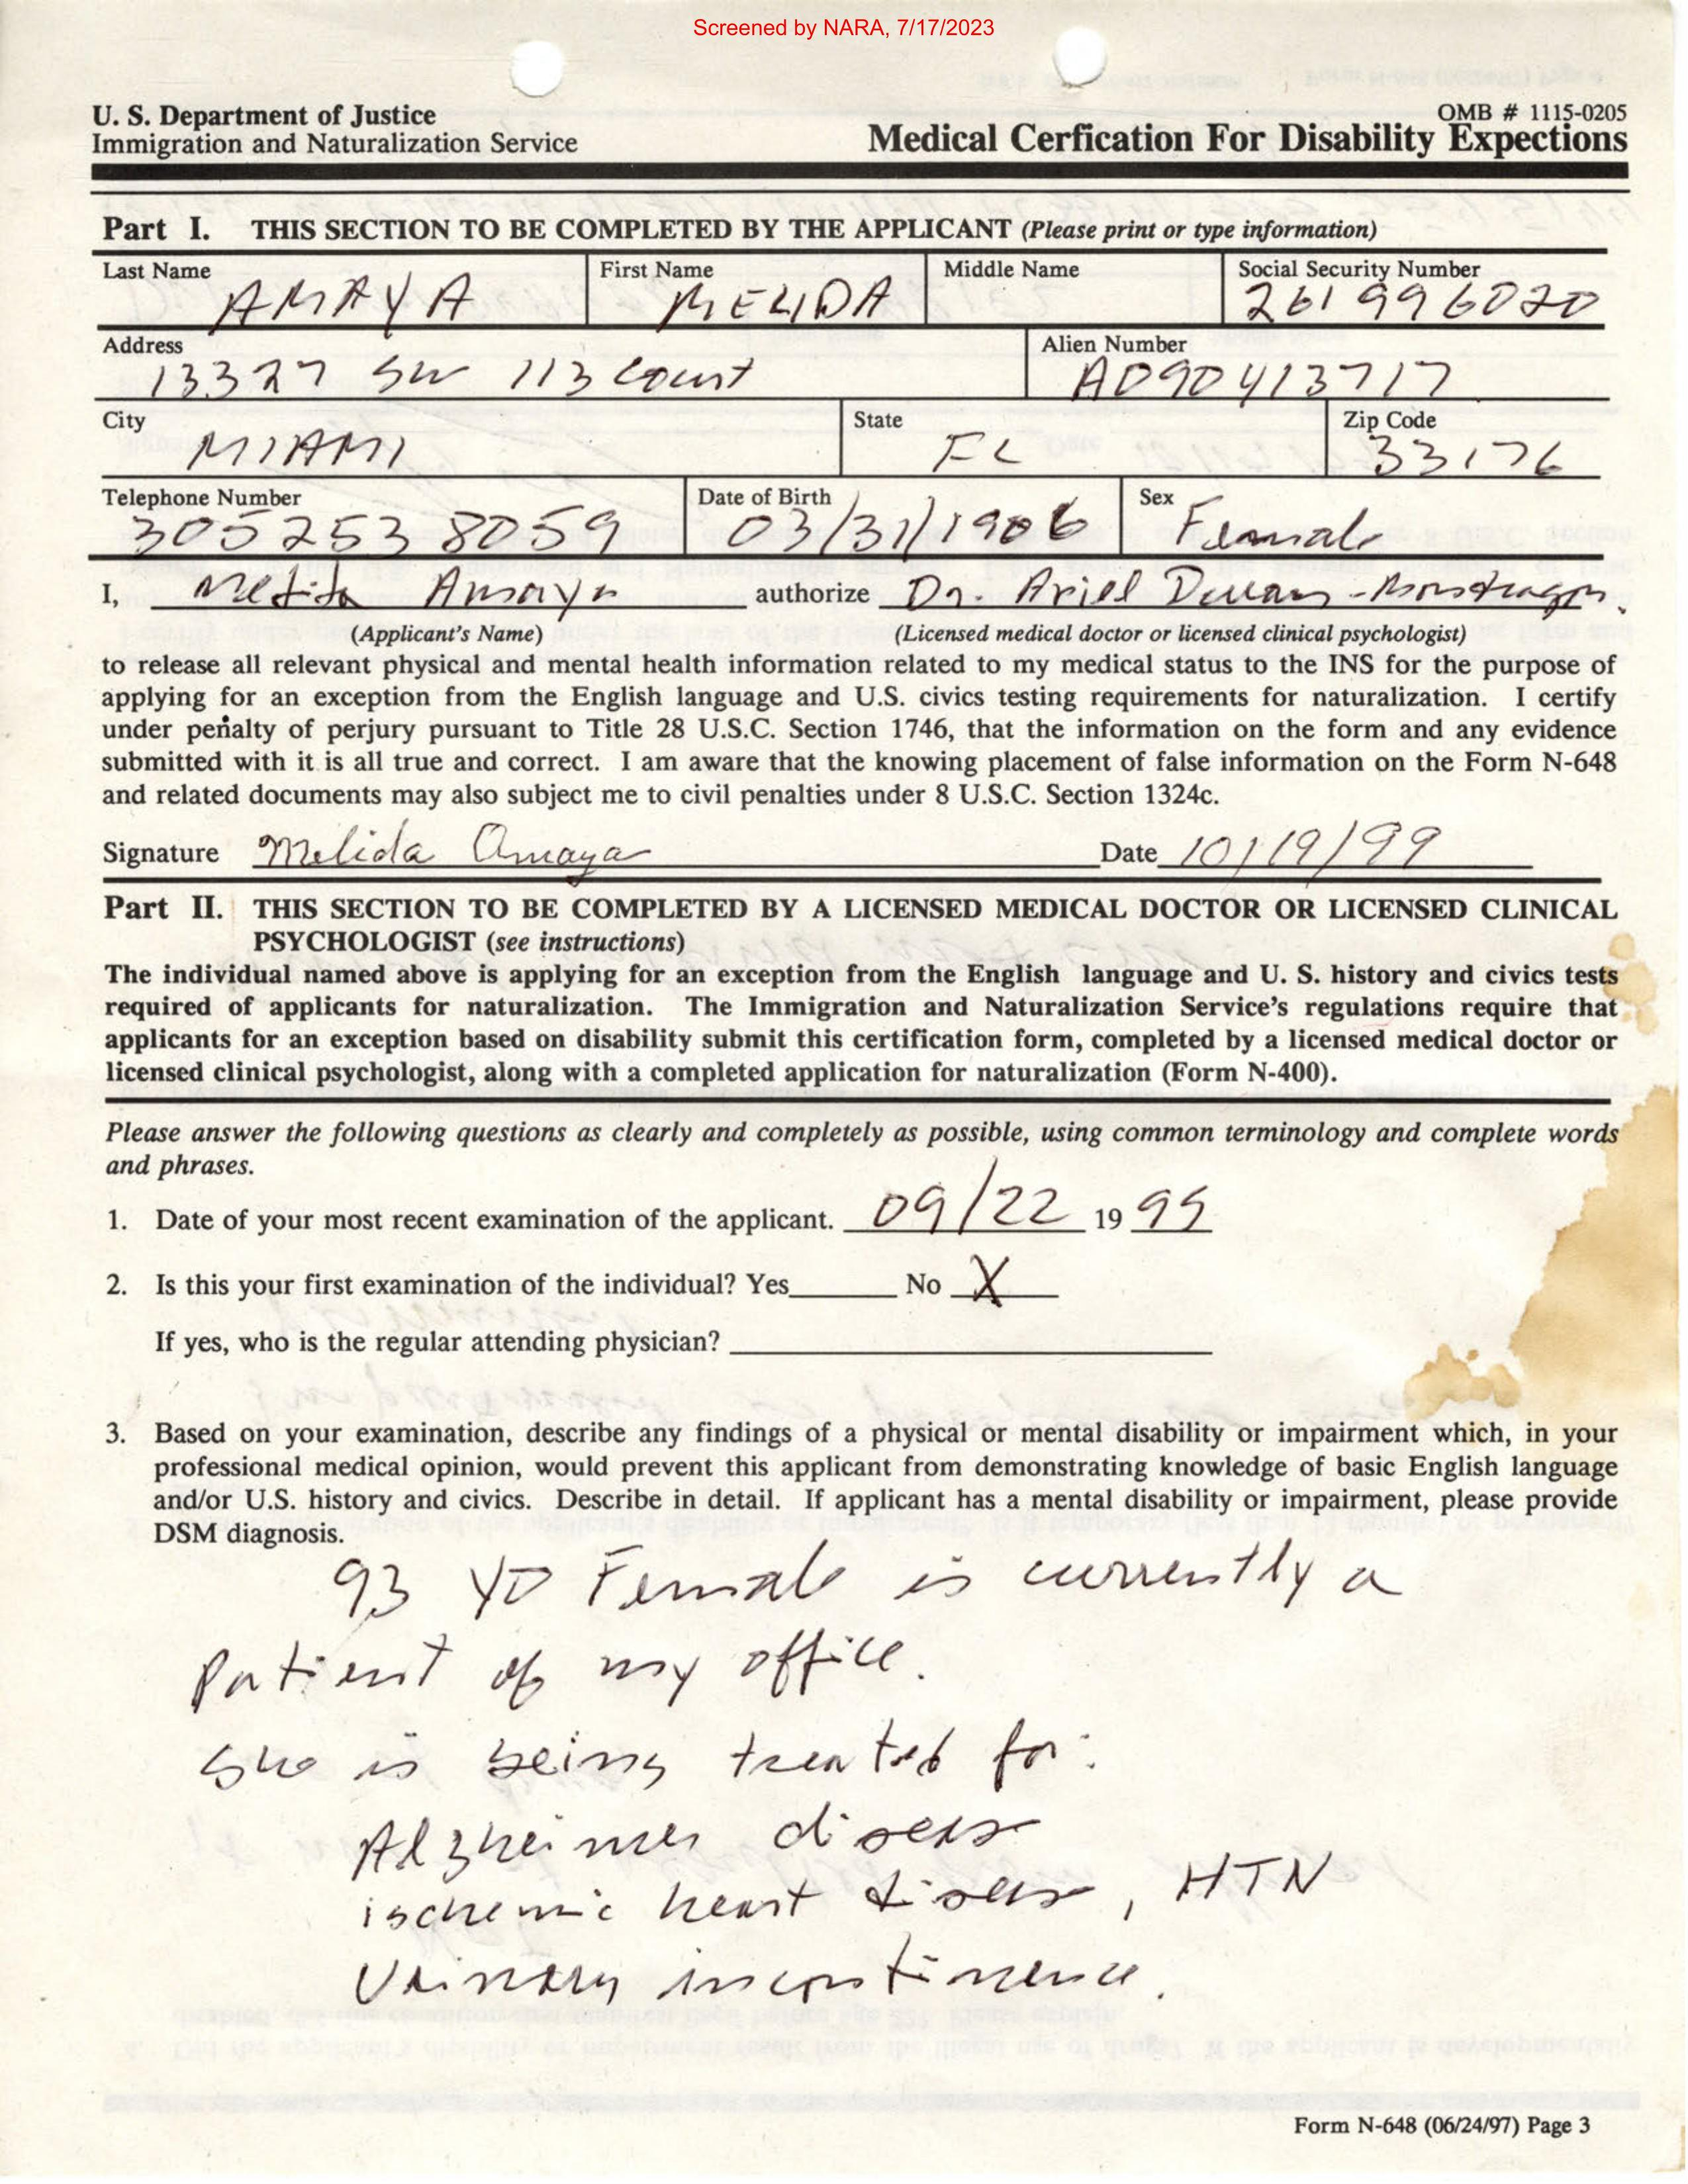 Screened by NARA, 7/17/2023
U. S. Department of Justice
Immigration and Naturalization Service
OMB # 1115-0205
Medical Cerfication For Disability Expections
Part I. THIS SECTION TO BE COMPLETED BY THE APPLICANT (Please print or type information)
Last Name First Name Middle Name Social Security Number
AMAYA MELIDA 261996020
Address Alien Number
13327 SW 113 Court A090413717
City State Zip Code
MIAMI FL 33176
Telephone Number Date of Birth Sex
305 253 8059 03/31/1906 Female
I, Melida Amaya authorize Dr. Ariel
(Applicant's Name) (Licensed medical doctor or licensed clinical psychologist)
to release all relevant physical and mental health information related to my medical status to the INS for the purpose of
applying for an exception from the English language and U.S. civics testing requirements for naturalization. I certify
under penalty of perjury pursuant to Title 28 U.S.C. Section 1746, that the information on the form and any evidence
submitted with it is all true and correct. I am aware that the knowing placement of false information on the Form N-648
and related documents may also subject me to civil penalties under 8 U.S.C. Section 1324c.
Signature Melida Amaya Date 10/19/99
Part II. THIS SECTION TO BE COMPLETED BY A LICENSED MEDICAL DOCTOR OR LICENSED CLINICAL
PSYCHOLOGIST (see instructions)
The individual named above is applying for an exception from the English language and U. S. history and civics tests
required of applicants for naturalization. The Immigration and Naturalization Service's regulations require that
applicants for an exception based on disability submit this certification form, completed by a licensed medical doctor or
licensed clinical psychologist, along with a completed application for naturalization (Form N-400).
Please answer the following questions as clearly and completely as possible, using common terminology and complete words
and phrases.
1. Date of your most recent examination of the applicant. 09/22 19 99
2. Is this your first examination of the individual? Yes No X
If yes, who is the regular attending physician?
3. Based on your examination, describe any findings of a physical or mental disability or impairment which, in your
professional medical opinion, would prevent this applicant from demonstrating knowledge of basic English language
and/or U.S. history and civics. Describe in detail. If applicant has a mental disability or impairment, please provide
DSM diagnosis.
93 YO Female is currently a
patient of my office.
She is being treated for:
Alzheimer disease
ischemic heart disease, HTN
Urinary incontinence.
Form N-648 (06/24/97) Page 3